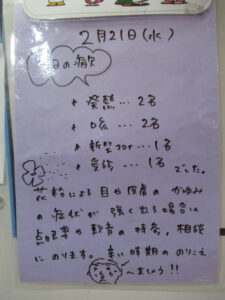 2月21日(水)
今日の欠
* 発熱…2名
* 咳…2名
* 新型コロナ…1名
* 受診…1名
でした。
花粉による目や皮膚のかゆみ
の症状が強く出る場合は
点眼薬や軟膏の持参、相談
にのります。辛い時期ののりこえ
〜ましょう!!